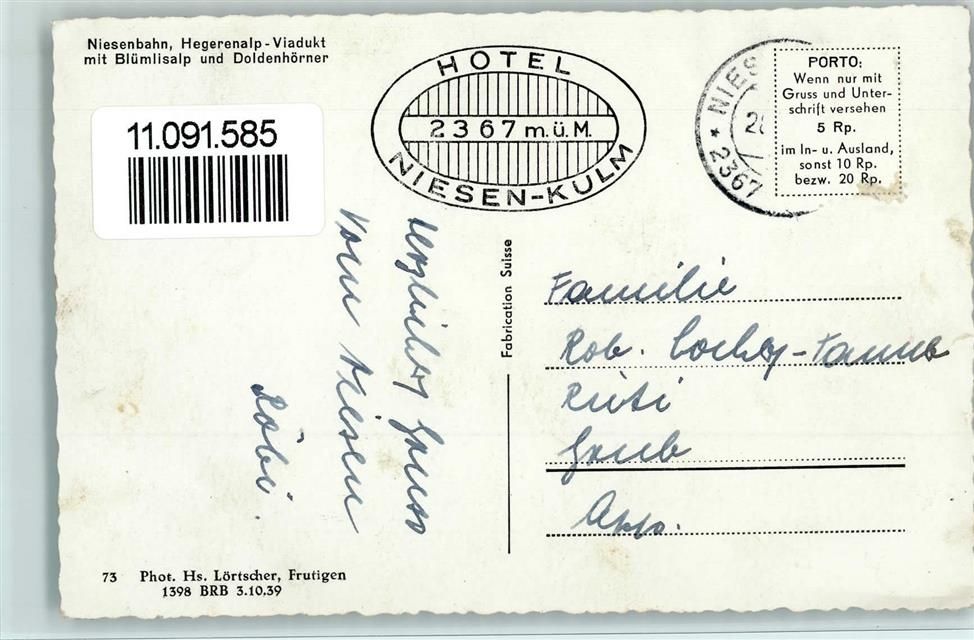 Niesenbahn, Hegerenalp-Viadukt
mit Blümlisalp und Doldenhörner
11.091.585
HOTEL
2367 m.ü.M.
NIESEN-KULM
* NIES
2367
PORTO:
Wenn nur mit
Gruss und Unter-
schrift versehen
5 Rp.
im In- u. Ausland,
sonst 10 Rp.
bezw. 20 Rp.
Herzlicher Gruss
vom Niesen
Röbi.
Fabrication Suisse
Familie
Rob.
Rüti
Grub
App.
73 Phot. Hs. Lörtscher, Frutigen
1398 BRB 3.10.39